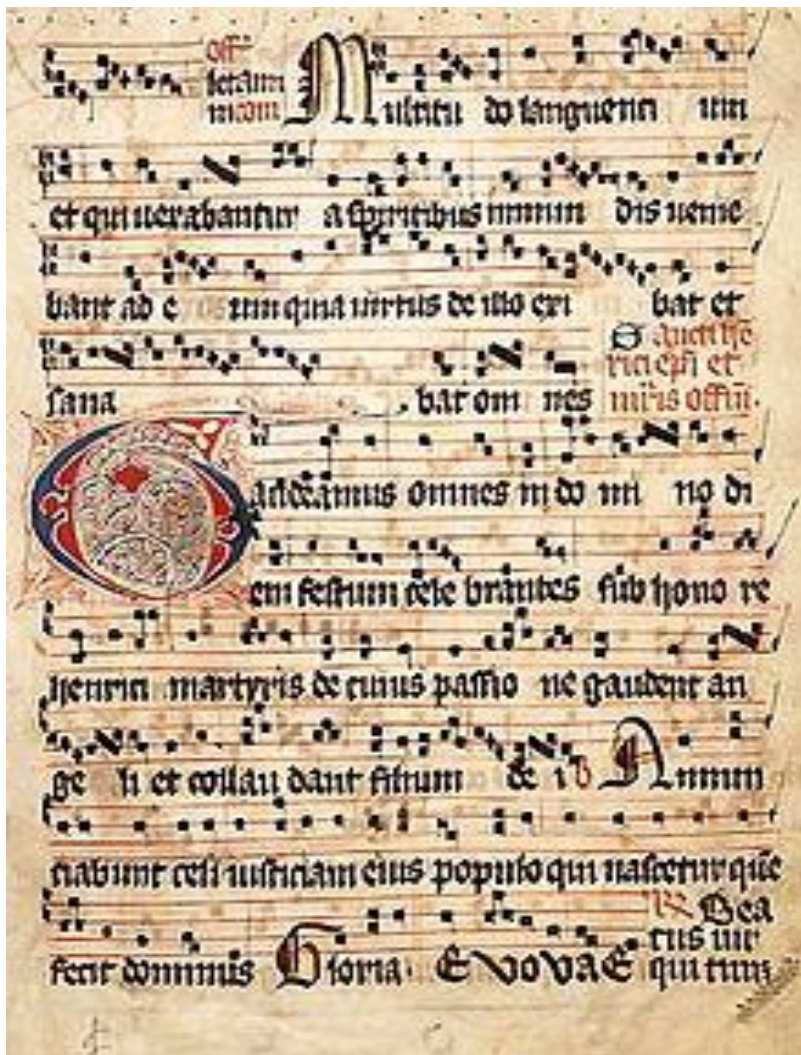 Offm
letam
m com Multitu do languenti um
et qui uexabantur a spiritibus inmun dis uenie
bant ad e um quia uirtus de illo exi bat et
sana bat om nes
Sancti he
rici epi et
mris offm.
Gaudeamus omnes in do mi no di
em festum cele brantes sub hono re
henrici martyris de cuius passio ne gaudent an
ge li et collau dant filium de i Annun
ciabunt celi iusticiam eius populo qui nascetur que
fecit dominus Gloria. EVOVAE
Bea
tus uir
qui tim